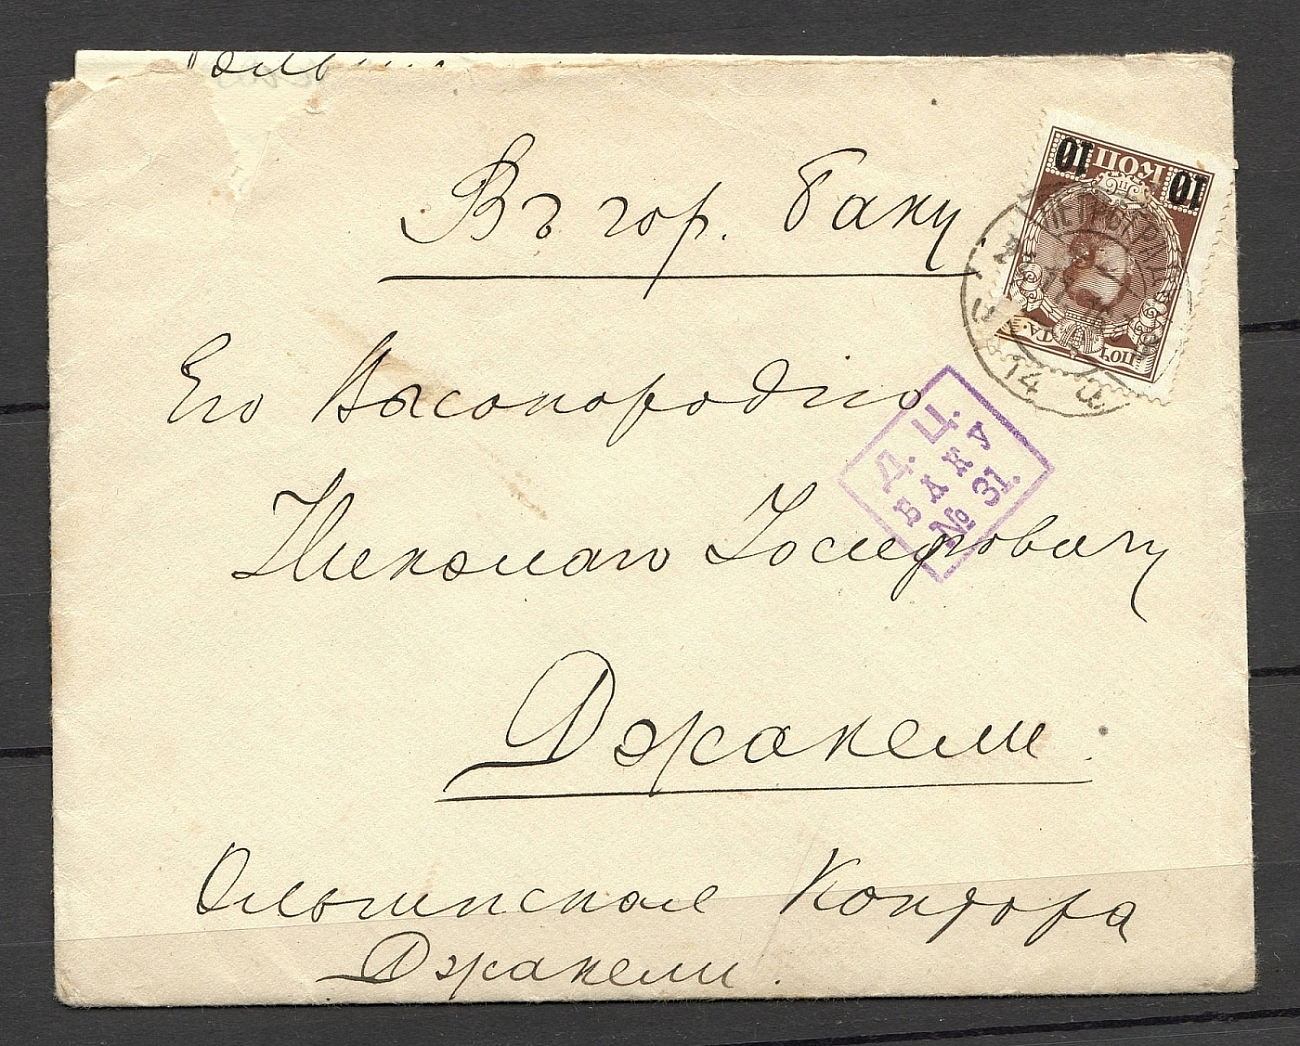 Въ гор. Баку
10 КОП 10
ПЕТРОГРАДЪ
14
ПОЧТА.
Его Высокородію
Д. Ц.
БАКУ
№ 31.
Николаю Іосифовичу
Джакели.
Ольгинская Контора
Джакели.